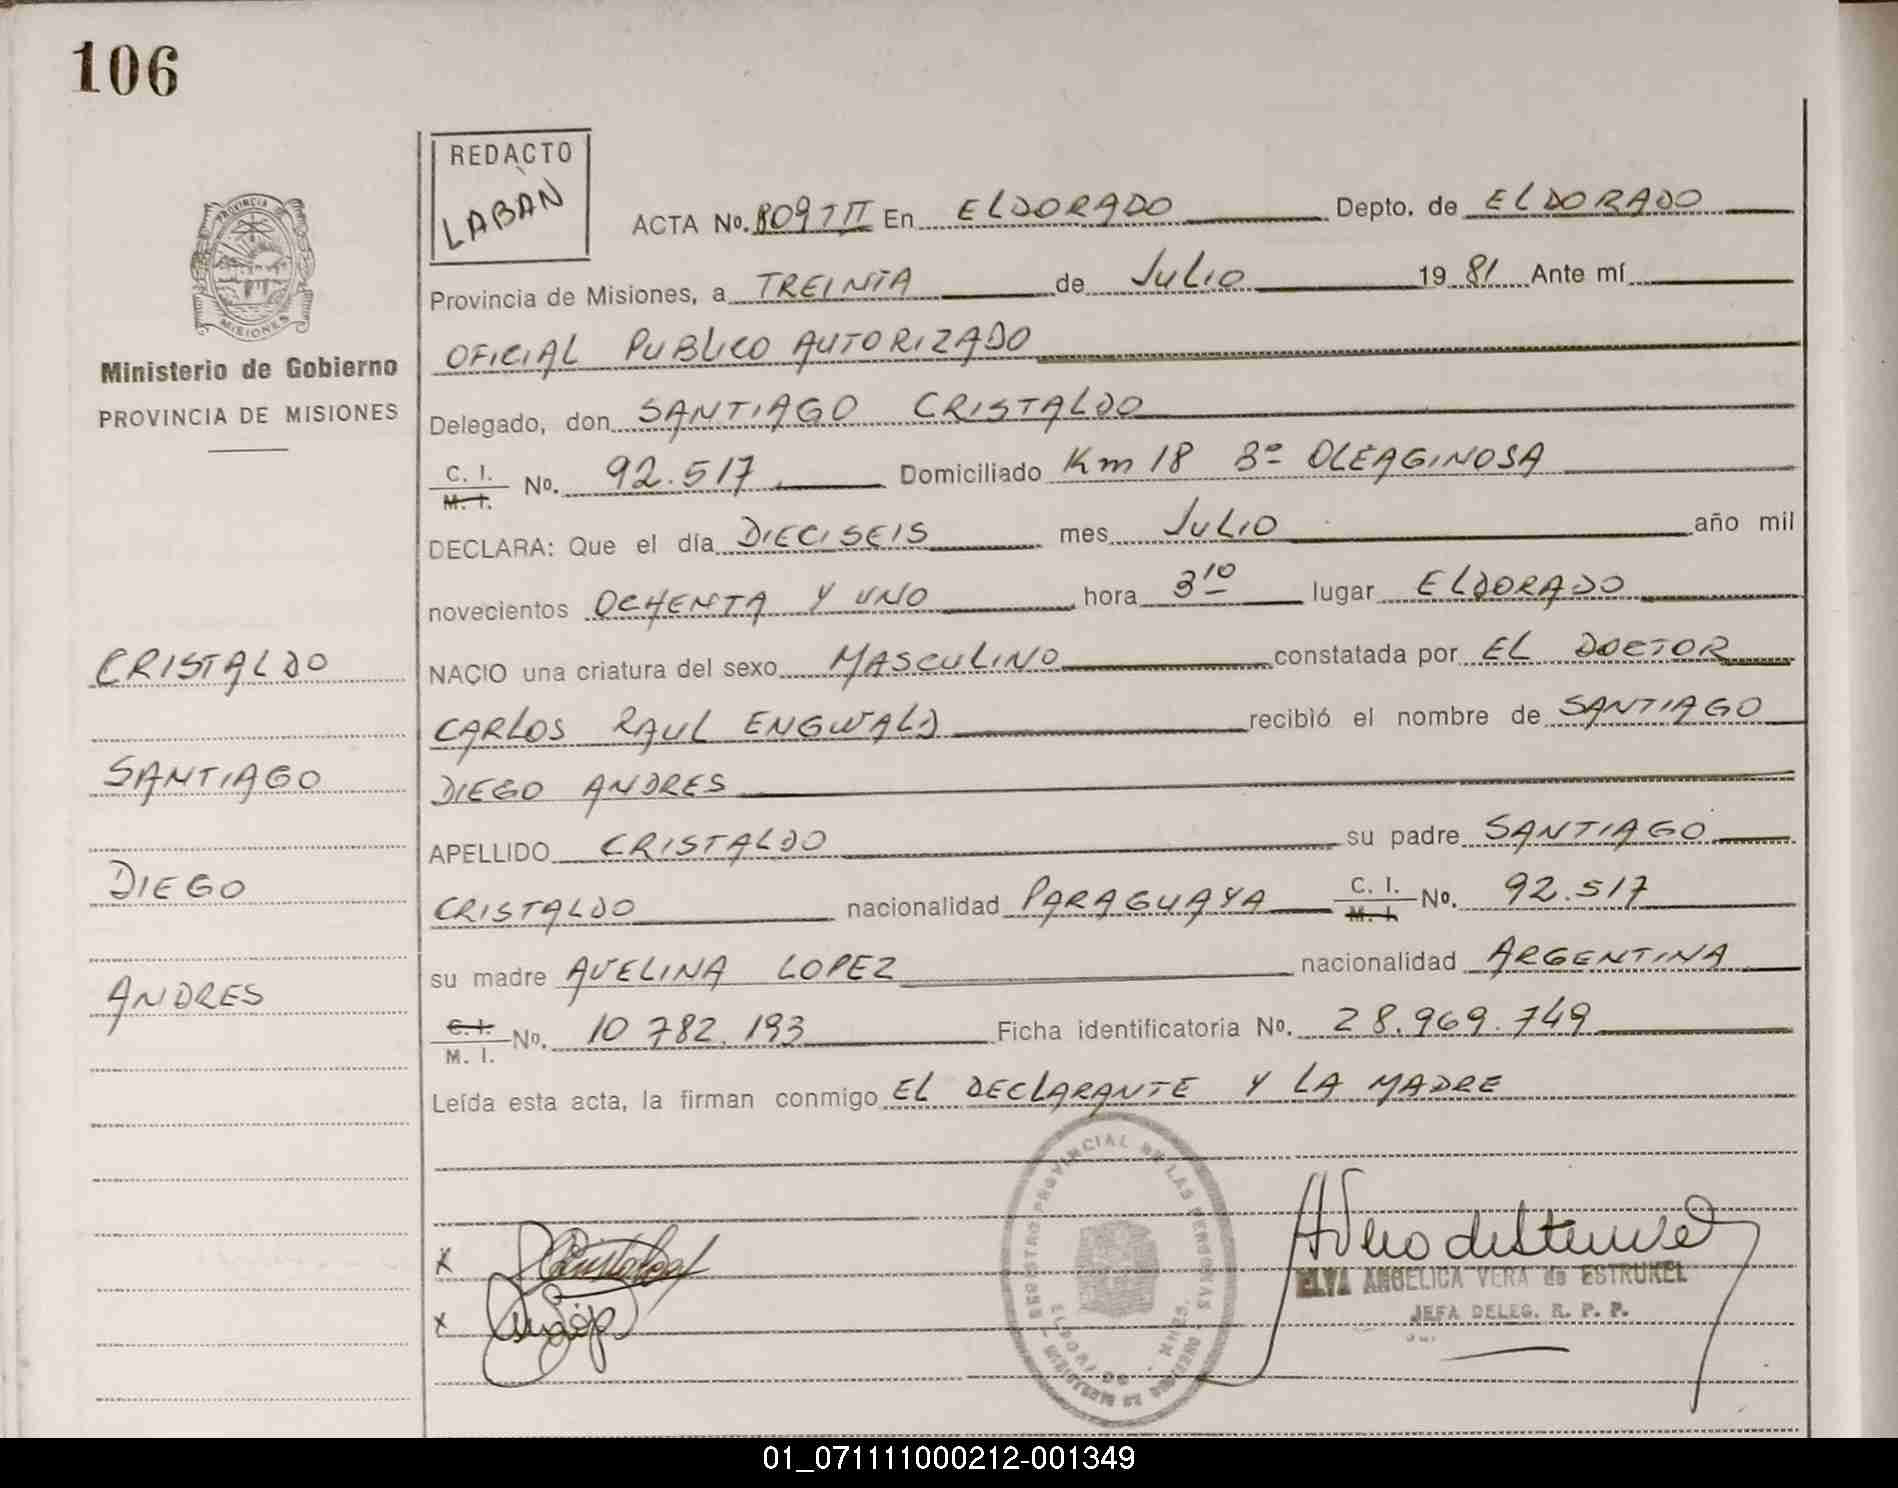 106
REDACTO
LABAN
ACTA No. 809 T II En ELDORADO Depto. de ELDORADO
Provincia de Misiones, a TREINTA de JULIO 19 81 Ante mí
OFICIAL PUBLICO AUTORIZADO
Delegado, don SANTIAGO CRISTALDO
C. I.
M. I. No. 92.517 Domiciliado Km 18 Bº OLEAGINOSA
DECLARA: Que el día DIECISEIS mes JULIO año mil
novecientos OCHENTA Y UNO hora 3 10 lugar ELDORADO
NACIO una criatura del sexo MASCULINO constatada por EL DOCTOR
CARLOS RAUL ENGWALD recibió el nombre de SANTIAGO
DIEGO ANDRES
APELLIDO CRISTALDO su padre SANTIAGO
CRISTALDO nacionalidad PARAGUAYA C. I. M. I. No. 92.517
su madre AVELINA LOPEZ nacionalidad ARGENTINA
C. I.
M. I. No. 10 782.193 Ficha identificatoria No. 28.969.749
Leída esta acta, la firman conmigo EL DECLARANTE Y LA MADRE
PROVINCIA
MISIONES
Ministerio de Gobierno
PROVINCIA DE MISIONES
CRISTALDO
SANTIAGO
DIEGO
ANDRES
x
x
REGISTRO PROVINCIAL DE LAS PERSONAS
ELDORADO MNES.
ELVA ANGELICA VERA de ESTRUKEL
JEFA DELEG. R. P. P.
01_071111000212-001349